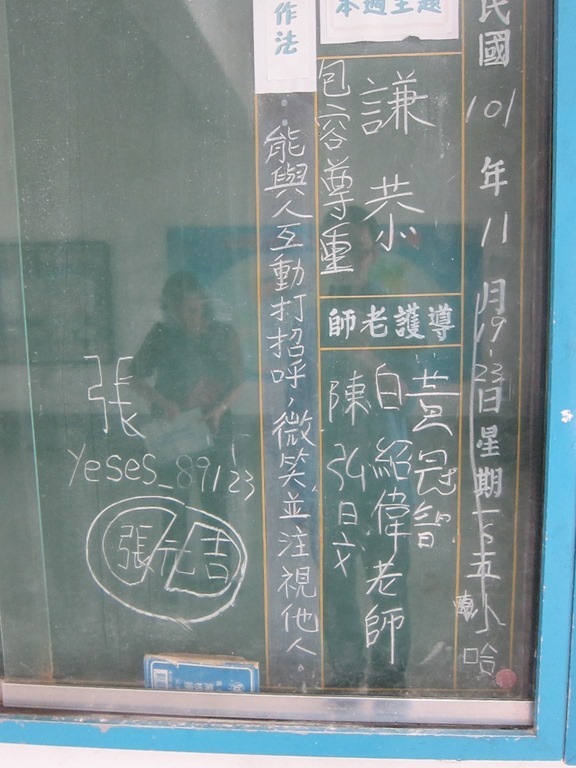 民國101年11月19-23日星期一~五
小哈
本週主題
謙恭
包容尊重
導護老師
黃冠智
白紹偉老師
陳弘文
作法
能與人互動打招呼,微笑並注視他人。
張
yeses_891123
張元吉